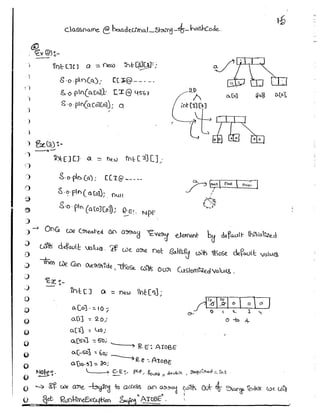 15
classname @ hexadecimal_string_of_hashcode.
Ex②:-
int[][] a = new int[2][3];
S.o.pln(a); [[I@-----
S.o.pln(a[0]); [I@4567
S.o.pln(a[0][0]); 0
a
2D
int[2][3]
a[0]
a[1]
Ex③:-
int[][] a = new int[3][];
S.o.pln(a); [[I@-----
S.o.pln(a[0]); null
S.o.pln(a[0][0]); R.E:- NPE
a
null null null
→ Once we created an array Every element by default initialized
with default values. If we are not satisfy with those default values
then we can override, those with our customized values.
Ex:-
int[] a = new int[5];
a[0] = 10;
a[1] = 20;
a[2] = 40;
a[50] = 50; → R.E: AIOBE
a[-50] = 60; → R.E: AIOBE
a[10.5] = 30; → C.E:- PLP, found = double, required = int
a
0 0
0 1 2 3 4
0 to 4
Note:-
→ If we are trying to access an array with out of range index we will
get RuntimeException Saying "AIOBE".